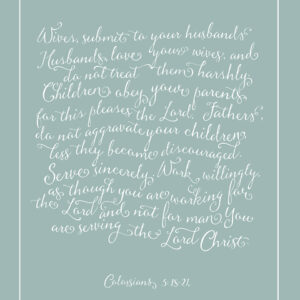 Wives, submit to your husbands.
Husbands, love your wives, and
do not treat them harshly.
Children obey your parents,
for this pleases the Lord. Fathers,
do not aggravate your children,
less they become discouraged.
Serve sincerely. Work willingly,
as though you are working for
the Lord and not for man. You
are serving the Lord Christ.
Colossians, 3:18-21,